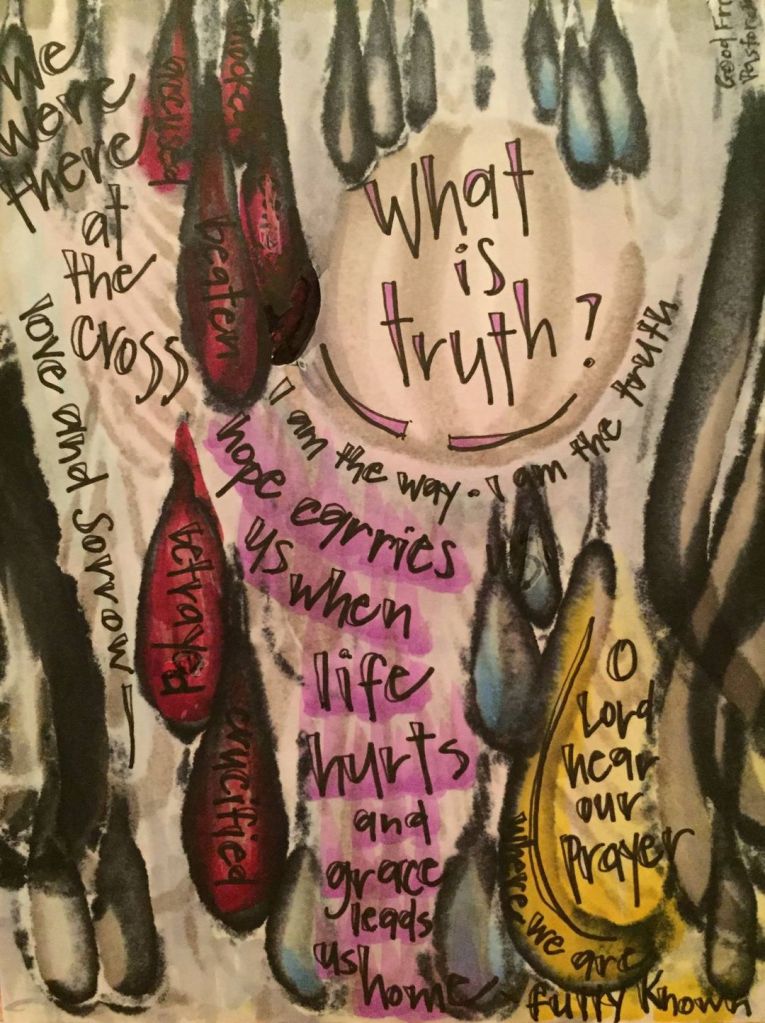 We
were
there
at
the
cross
love and sorrow
accused
mocked
beaten
betrayed
crucified
What
is
truth?
I am the way . I am the truth
hope carries
us when
life
hurts
and
grace
leads
us home
O
Lord
hear
our
prayer
where we are
fully known
Good Fr
Pastor